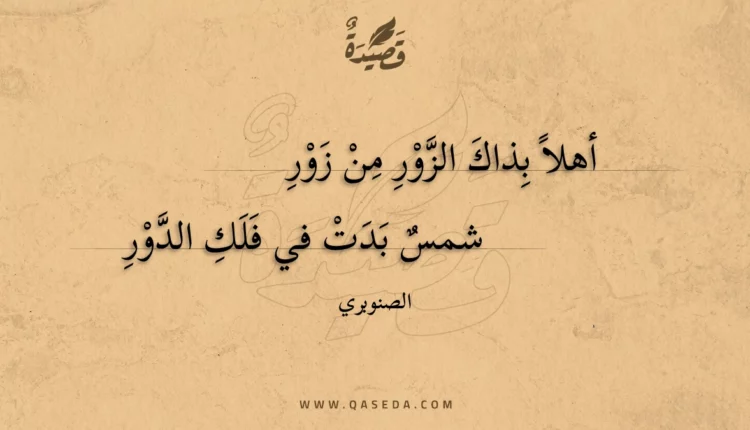 قَصِيْدَةٌ
أهلاً بِذاكَ الزَّوْرِ مِنْ زَوْرِ
شمسٌ بَدَتْ في فَلَكِ الدَّوْرِ
الصنوبري
WWW.QASEDA.COM